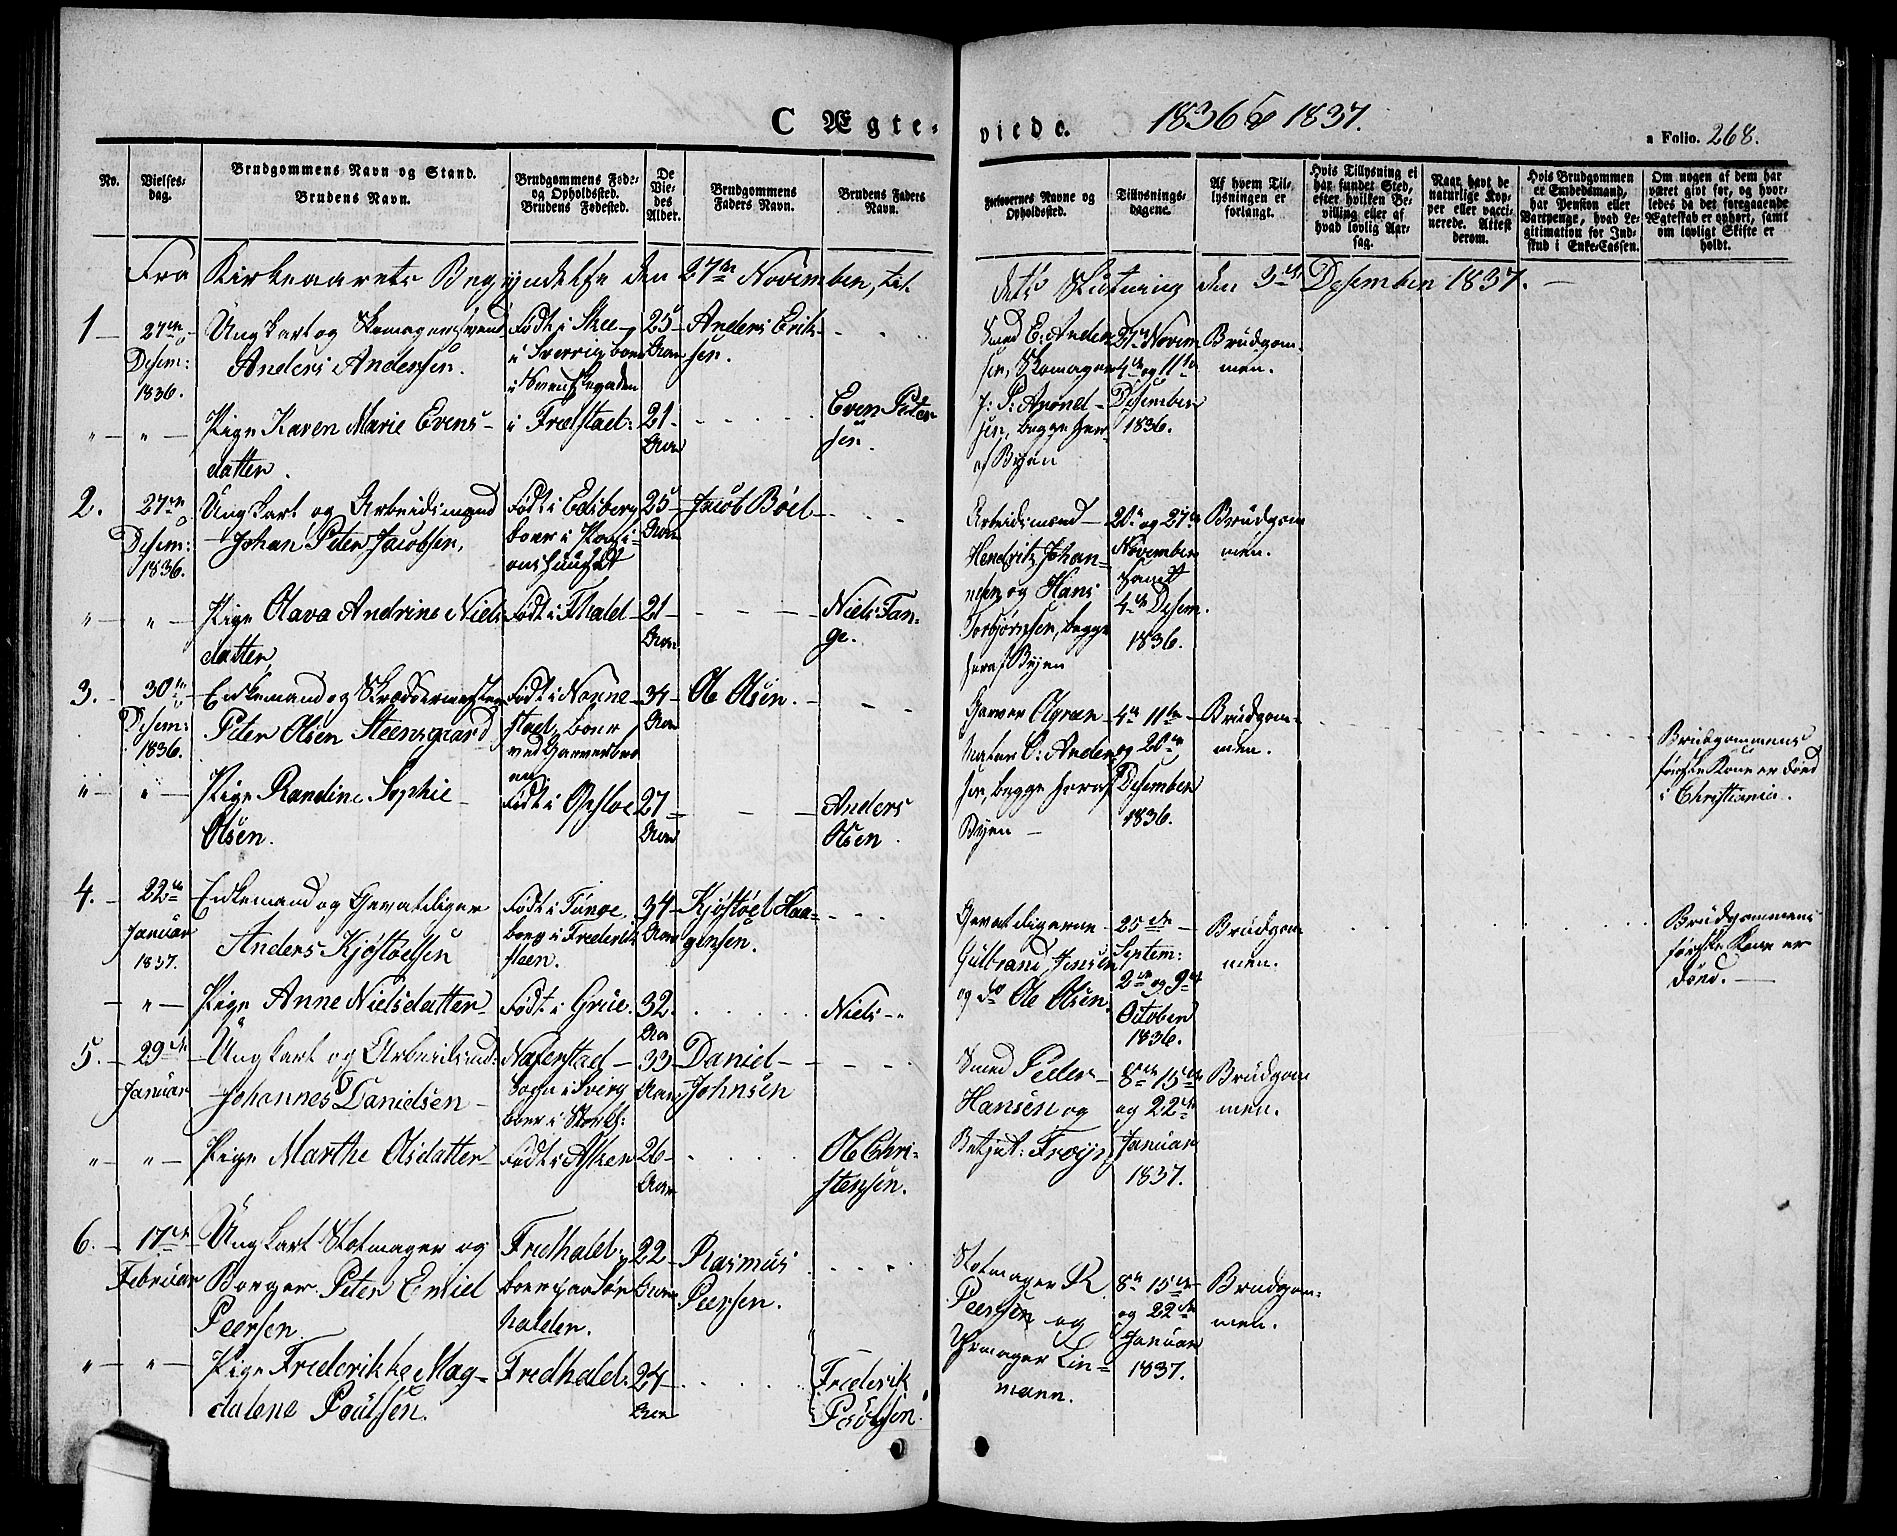 C Ægte-
viede. 1836 & 1837.
a Folio. 268.
No.
Vielses-
dag.
Brudgommens Navn og Stand.
Brudens Navn.
Brudgommens Føde-
og Opholdssted.
Brudens Fødested.
De
Vie-
des
Alder.
Brudgommens
Faders Navn.
Brudens Faders
Navn.
Forlovernes Navne og
Opholdssted.
Tillysnings-
dagene.
Af hvem Til-
lysningen er
forlangt.
Hvis Tillysning ei
har fundet Sted,
efter hvilken Be-
villing eller af
hvad lovlig Aar-
sag.
Naar havt de
naturlige Kop-
per eller vacci-
nerede. Attest
derom.
Hvis Brudgommen
er Embedsmand,
har Pension eller
Vartpenge, hvad Le-
gitimation for Ind-
skud i Enke-Cassen.
Om nogen af dem har
været givt før, og hvor-
ledes da det foregaaende
Ægteskab er ophørt, samt
om lovligt Skifte er
holdt.
Fra Kirkeaarets Begyndelse den 27de November, til
dets Slutning den 3die Desember 1837.
1
27de
Desem:
1836.
Ungkarl og Skomagersvend
Anders Andersen.
Født i Skee
i Sverrig boer
25
Aar
Anders Erik-
sen.
Smed E: Ander-
sen, Skomager
J: P: Arønd-
sen, begge her
af Byen
27de Novem
4de og 11te
Desember
1836.
Brudgom-
men.
" "
Pige Karen Marie Evens-
datter.
i Fredstad:
21
Aar
Even Peter
sen.
2.
27de
Desem:
1836.
Ungkarl og Arbeidsmand
Johan Peter Jacobsen,
Født i Edsberg
boer i
25
Aar
Jacob Böel
Arbeidsmand
Hendrik Johan-
nesen og Hans
Torbjørnsen, begge
her af Byen
20de og 27de
November
samt
4de Desem.
1836.
Brudgom
men.
" "
Pige Olava Andrine Niels
datter
Født i Fhald
21
Aar
Niels Tan-
ge.
3.
30te
Desem:
1836.
Enkemand og Skreddermester
Peter Olsen Steensgaard
Født i Nanne-
stad, boer
ved
34
Aar
Ole Olsen.
Garver Olgreen
Mater C: Ander
sen, begge her af
Byen
4de 11te
og 20de
Desember
1836.
Brudgom-
men.
Brudgommens
første Kone er død
i Christiania.
" "
Pige Randine Sophie
Olsen.
Født i Opsloe
27
Aar
Anders
Olsen
4.
22de
Januar
1837.
Enkemand og Gevaldiger
Anders Kjøstoelsen
Født i Tunøe,
boer i Frederik
steen.
34
Aar
Kjøstoel Haa-
gensen.
Gevaldigerne
Gulbrand Jensen
og do Ole Olsen.
25de
Septem:
2den og 9de
October
1836.
Brudgom
men.
Brudgommens
første Kone er
død.
"
Pige Anne Nielsdatter
Født i Grue.
32
Aar
Niels
5.
29de
Januar
Ungkarl og Arbeidsmd:
Johannes Danielsen
Naverstad
Sogn i Sverig
boer i
33
Aar
Daniel
Johnsen
Smed Peder
Hansen og
Betjent: Frøys
8de 15de
og 22de
Januar
1837.
Brudgom
men.
" "
Pige Marthe Olsdatter
Født i Askim
26
Aar
Ole Chri-
stensen.
6.
17de
Februar
Ungkarl Hatmager og
Borger Peter Emiel
Peersen
Fredhald:
boer paa Søn
halden.
22
Aar
Rasmus
Peersen.
Hatmager R
Peersen og
Uhrmager Lin-
mann.
8de 15de
og 22de
Januar
1837.
Brudgom-
men.
" "
Pige Frederikke Mag-
dalene Poulsen.
Fredhald:
24
Aar
Frederik
Poulsen